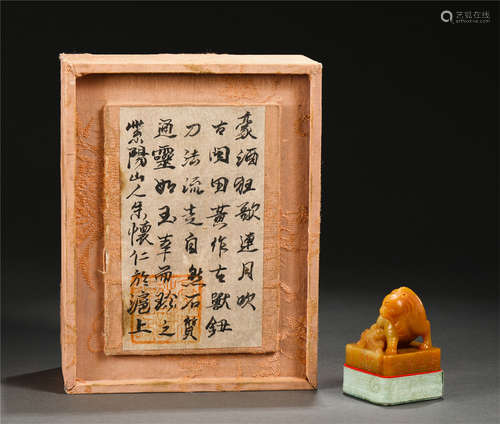 豪酒狂歌連月吹
古閩田黃作古獸鈕
刀法流走自然石質
通靈如玉幸而珍之
紫陽山人朱懷仁於滬上
艺狐在线